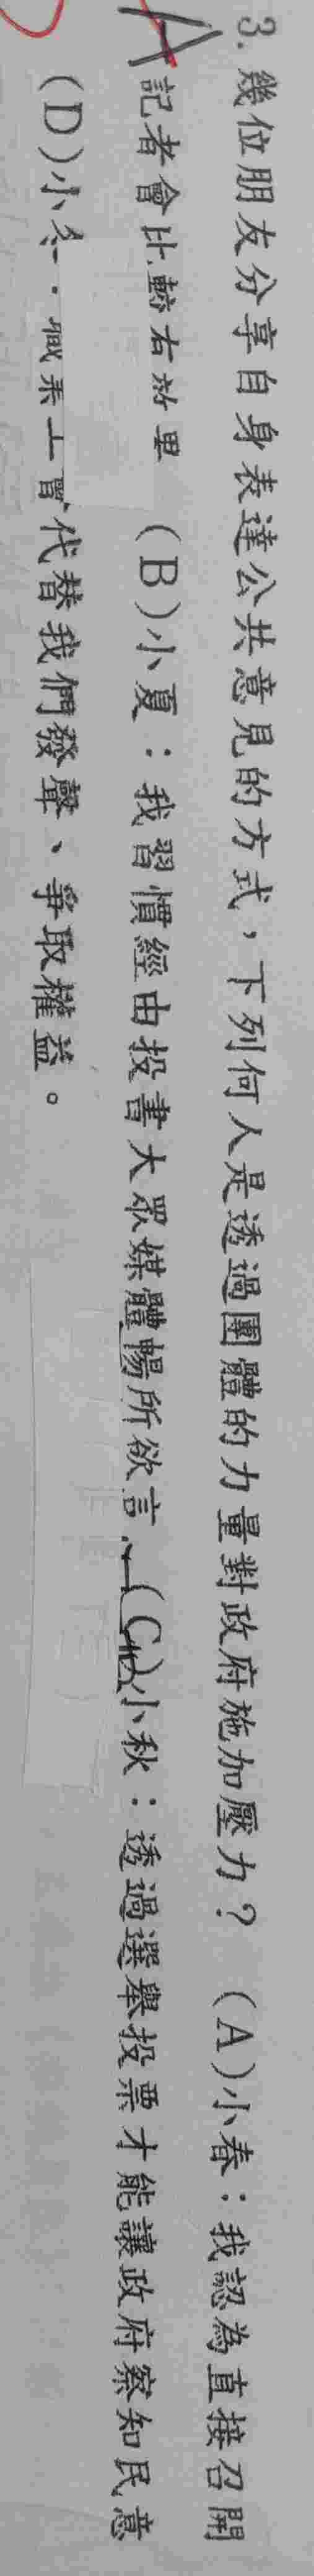 3. 幾位朋友分享自身表達公共意見的方式，下列何人是透過團體的力量對政府施加壓力？ (A)小春：我認為直接召開
A 記者會比較有效果 (B)小夏：我習慣經由投書大眾媒體暢所欲言 (C)小秋：透過選舉投票才能讓政府察知民意
(D)小冬：職業工會代替我們發聲、爭取權益。